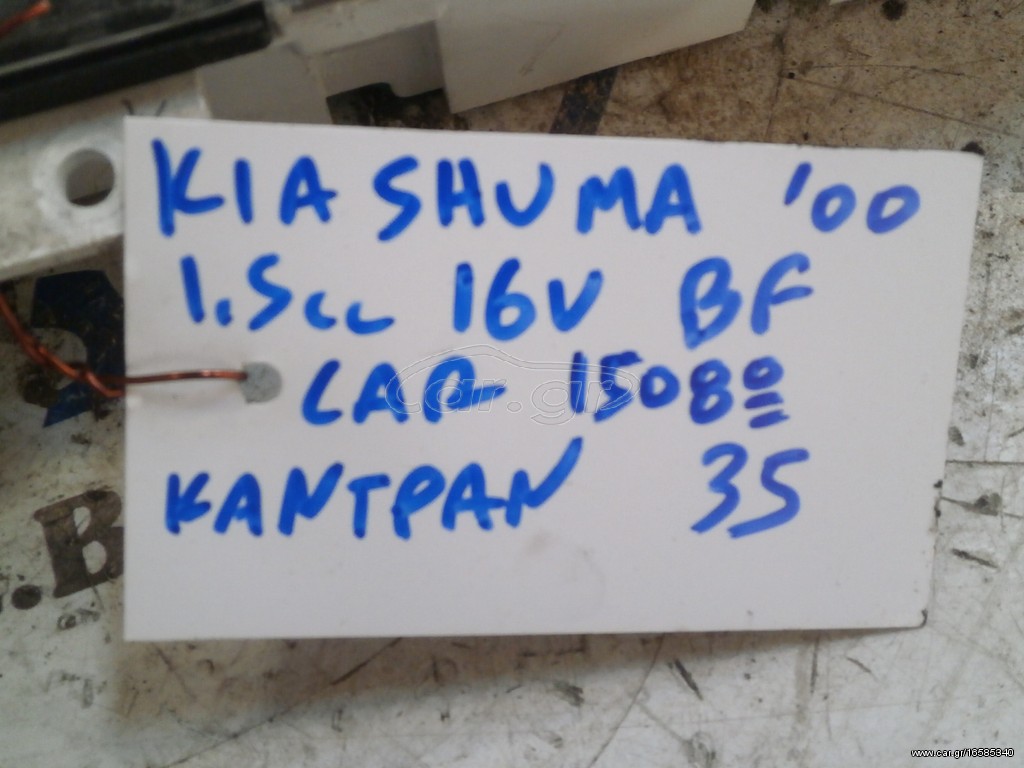 KIA SHUMA '00
1.5cc 16V BF
CAR 15080
ΚΑΝΤΡΑΝ 35
car.gr
.B
www.car.gr/18585340